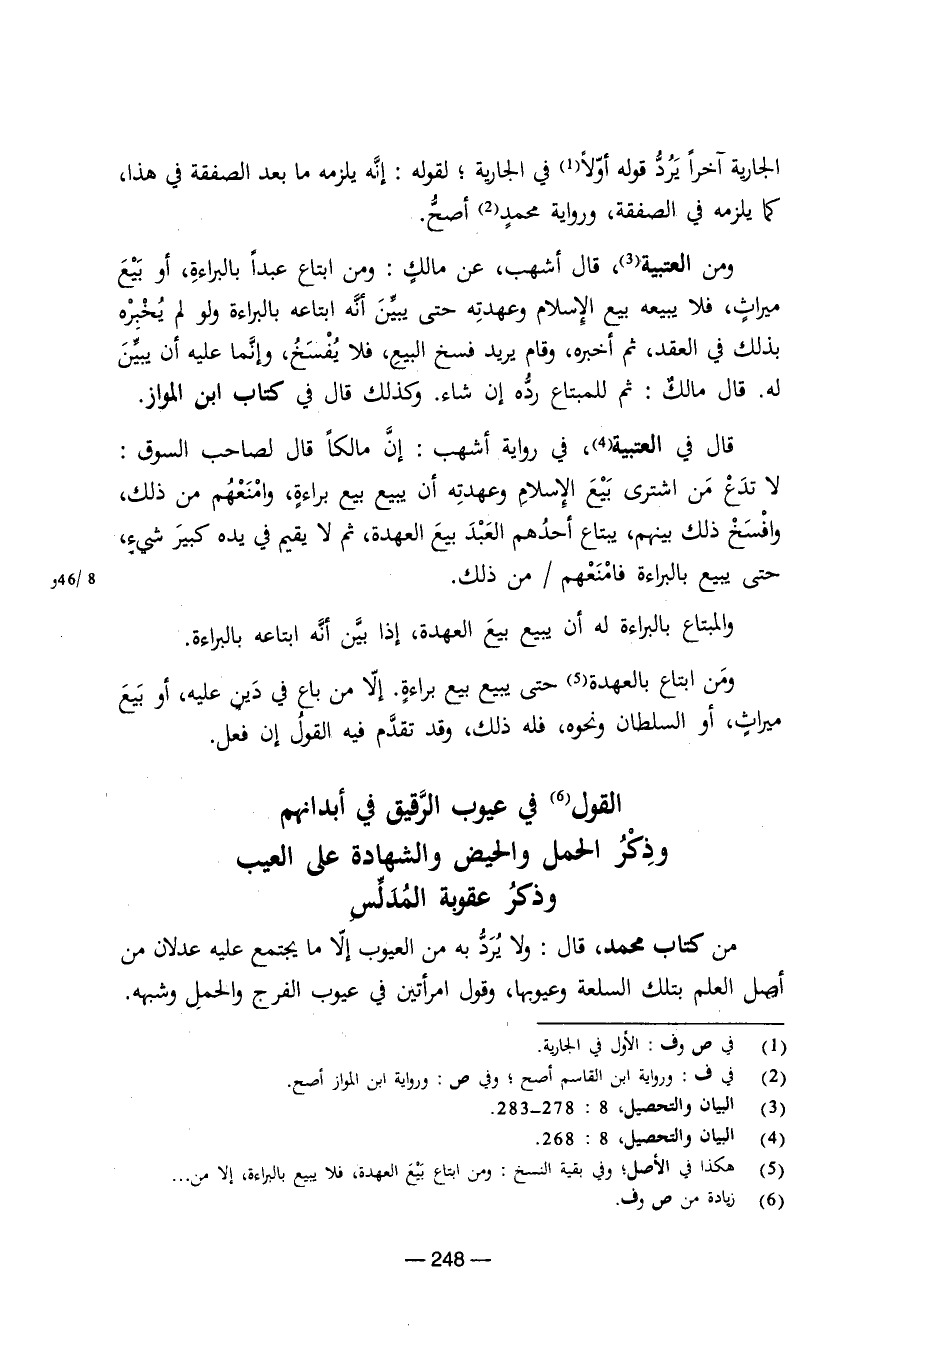 الجارية آخراً يَرُدُّ قوله أوّلاً(1) في الجارية ؛ لقوله : إنَّه يلزمه ما بعد الصفقة في هذا،
كما يلزمه في الصفقة، ورواية محمدٍ(2) أصحُّ.
ومن العتبية(3)، قال أشهب، عن مالكٍ : ومن ابتاع عبداً بالبراءةِ، أو بَيْعَ
ميراثٍ، فلا يبيعه بيع الإسلام وعهدتِه حتى يبيِّنَ أنَّه ابتاعه بالبراءة ولو لم يُخْبِرْه
بذلك في العقد، ثم أخبره، وقام يريد فسخ البيع، فلا يُفْسَخُ، وإنَّما عليه أن يبيِّنَ
له. قال مالكٌ : ثم للمبتاع ردُّه إن شاء. وكذلك قال في كتاب ابن المواز.
قال في العتبية(4)، في رواية أشهب : إنَّ مالكاً قال لصاحب السوق :
لا تدَعْ مَن اشترى بَيْعَ الإسلامِ وعهدتِه أن يبيع بيع براءةٍ، وامْنَعْهُم من ذلك،
وافْسَخْ ذلك بينهم، يبتاع أحدُهم العَبْدَ بيعَ العهدة، ثم لا يقيم في يده كبيرَ شيءٍ،
حتى يبيع بالبراءة فامْنَعْهم / من ذلك.
8 /46و
والمبتاع بالبراءة له أن يبيع بيعَ العهدة، إذا بيَّن أنَّه ابتاعه بالبراءة.
ومَن ابتاع بالعهدة(5) حتى يبيع بيع براءةٍ. إلّا من باع في دَينٍ عليه، أو بَيعَ
ميراثٍ، أو السلطان ونحوه، فله ذلك، وقد تقدَّم فيه القولُ إن فعل.
القول(6) في عيوب الرَّقيق في أبدانهم
وذِكْرُ الحمل والحيض والشهادة على العيب
وذكرُ عقوبة المُدَلِّسِ
من كتاب محمد، قال : ولا يُرَدُّ به من العيوب إلّا ما يجتمع عليه عدلان من
أصل العلم بتلك السلعة وعيوبها، وقول امرأتين في عيوب الفرج والحملِ وشبهه.
(1) في ص وف : الأول في الجارية.
(2) في ف : ورواية ابن القاسم أصح ؛ وفي ص : ورواية ابن المواز أصح.
(3) البيان والتحصيل، 8 : 278_283.
(4) البيان والتحصيل، 8 : 268.
(5) هكذا في الأصل؛ وفي بقية النسخ : ومن ابتاع بَيْعَ العهدة، فلا يبيع بالبراءة، إلا من...
(6) زيادة من ص وف.
— 248 —